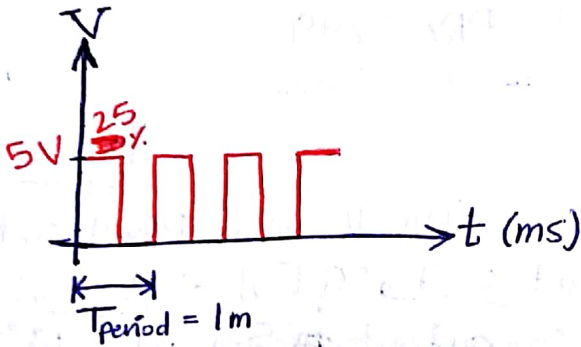 V
25
5V %
t (ms)
Tperiod = 1m